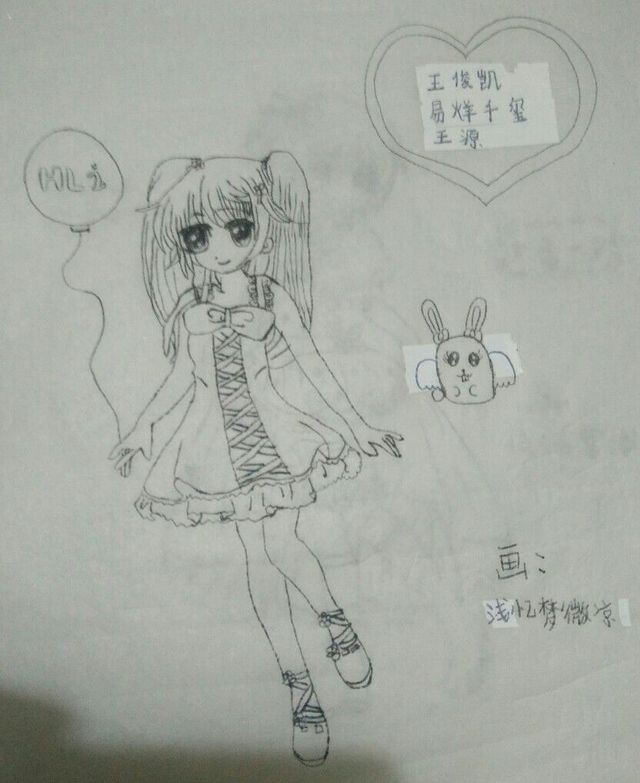 王俊凯
易烊千玺
王源
HLi
画：
浅忆梦微凉